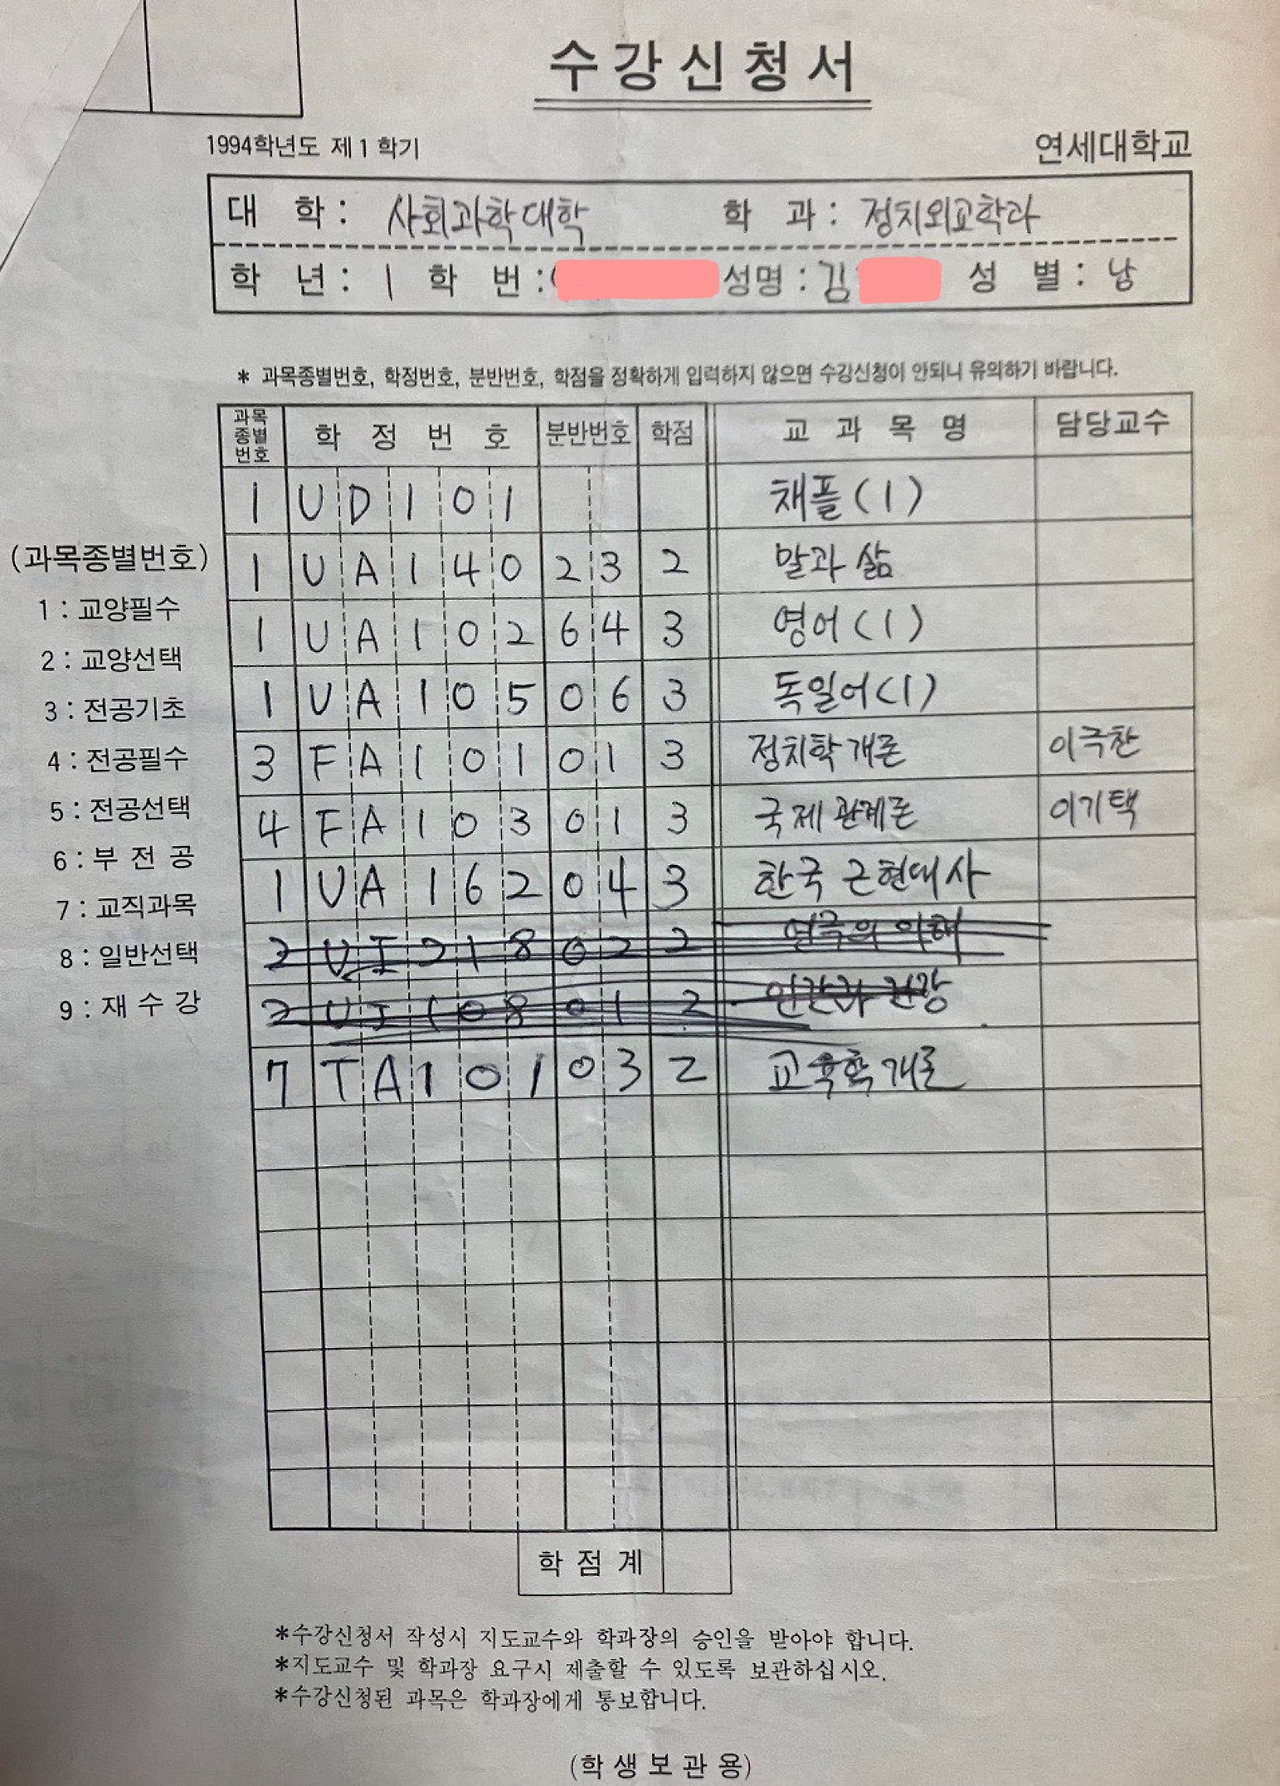 수강신청서
1994학년도 제1학기 연세대학교
대 학: 사회과학대학 학 과: 정치외교학과
학 년: 1 학 번: 성명: 김 성 별: 남
* 과목종별번호, 학정번호, 분반번호, 학점을 정확하게 입력하지 않으면 수강신청이 안되니 유의하기 바랍니다.
과목종별번호 학정번호 분반번호 학점 교과목명 담당교수
1 UD101 채플(1)
1 UA140 23 2 말과 삶
1 UA102 64 3 영어(1)
1 UA105 06 3 독일어(1)
3 FA101 01 3 정치학개론 이극찬
4 FA103 01 3 국제관계론 이기택
1 UA162 04 3 한국 근현대사
2 UI218 02 2 연극의 이해
2 UI108 01 2 인간과 건강
7 TA101 03 2 교육학개론
학점계
(과목종별번호)
1 : 교양필수
2 : 교양선택
3 : 전공기초
4 : 전공필수
5 : 전공선택
6 : 부 전 공
7 : 교직과목
8 : 일반선택
9 : 재 수 강
*수강신청서 작성시 지도교수와 학과장의 승인을 받아야 합니다.
*지도교수 및 학과장 요구시 제출할 수 있도록 보관하십시오.
*수강신청된 과목은 학과장에게 통보합니다.
(학생보관용)